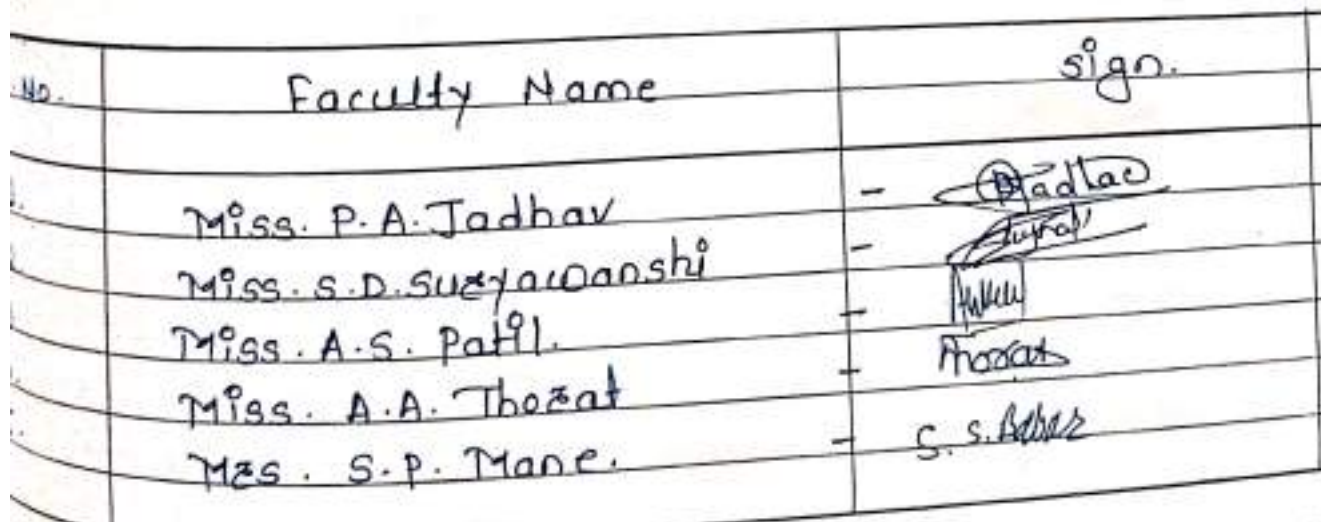 No. Faculty Name sign.
Miss. P. A. Jadhav - PJadhav
Miss. S. D. Suryawanshi -
Miss. A. S. Patil. -
Miss. A. A. Thorat - Thorat
Mrs. S. P. Mane. - S. S. Babar